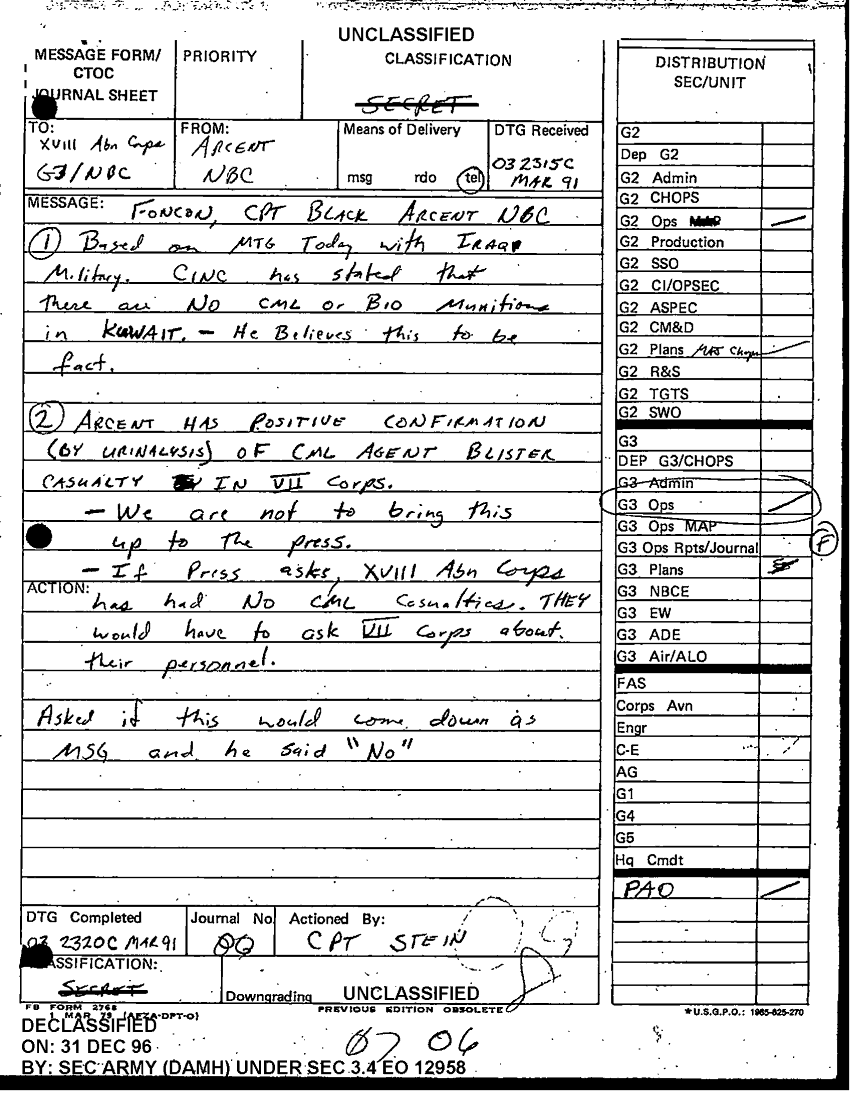 UNCLASSIFIED
MESSAGE FORM/
CTOC
JOURNAL SHEET
PRIORITY
CLASSIFICATION
SECRET
DISTRIBUTION
SEC/UNIT
TO:
XVIII Abn Corps
G3/NBC
FROM:
ARCENT
NBC
Means of Delivery
msg rdo tel
DTG Received
032315C
MAR 91
MESSAGE: FONCON, CPT BLACK ARCENT NBC
① Based on MTG Today with IRAQI
Military. CINC has stated that
there are NO CML or BIO Munitions
in KUWAIT. – He Believes this to be
fact.
② ARCENT HAS POSITIVE CONFIRMATION
(BY URINALYSIS) OF CML AGENT BLISTER
CASUALTY IN VII Corps.
– We are not to bring this
up to the press.
– If Press asks, XVIII Abn Corps
ACTION: has had No CML Casualties. THEY
would have to ask VII Corps about
their personnel.
Asked if this would come down as
MSG and he said "No"
DTG Completed
03 2320C MAR 91
Journal No
Actioned By:
CPT STEIN
CLASSIFICATION:
SECRET
Downgrading
UNCLASSIFIED
FB FORM 2768
1 MAR 79 (AFZA-DPT-O)
PREVIOUS EDITION OBSOLETE
G2
Dep G2
G2 Admin
G2 CHOPS
G2 Ops MAP
G2 Production
G2 SSO
G2 CI/OPSEC
G2 ASPEC
G2 CM&D
G2 Plans
G2 R&S
G2 TGTS
G2 SWO
G3
DEP G3/CHOPS
G3 Admin
G3 Ops
G3 Ops MAP
G3 Ops Rpts/Journal
F
G3 Plans
G3 NBCE
G3 EW
G3 ADE
G3 Air/ALO
FAS
Corps Avn
Engr
C-E
AG
G1
G4
G5
Hq Cmdt
PAO
★U.S.G.P.O.: 1985-625-270
DECLASSIFIED
ON: 31 DEC 96
BY: SEC ARMY (DAMH) UNDER SEC 3.4 EO 12958
07 06